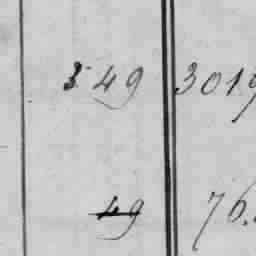 549 3019
49 76.